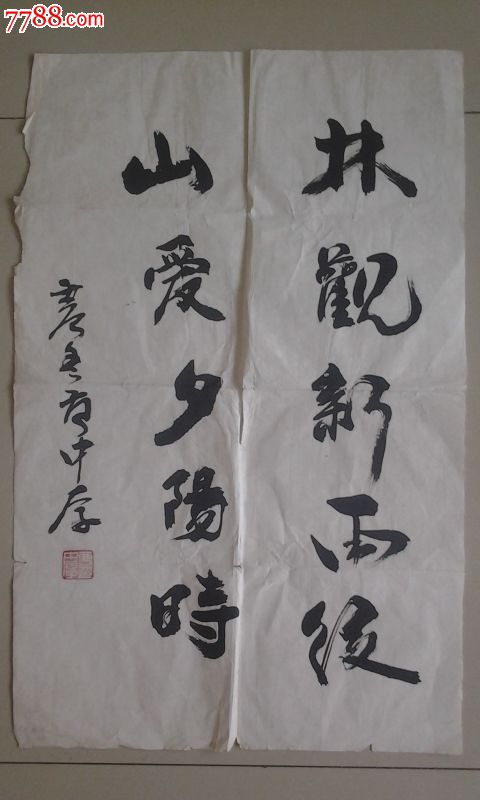 7788.com
林觀新雨後
山愛夕陽時